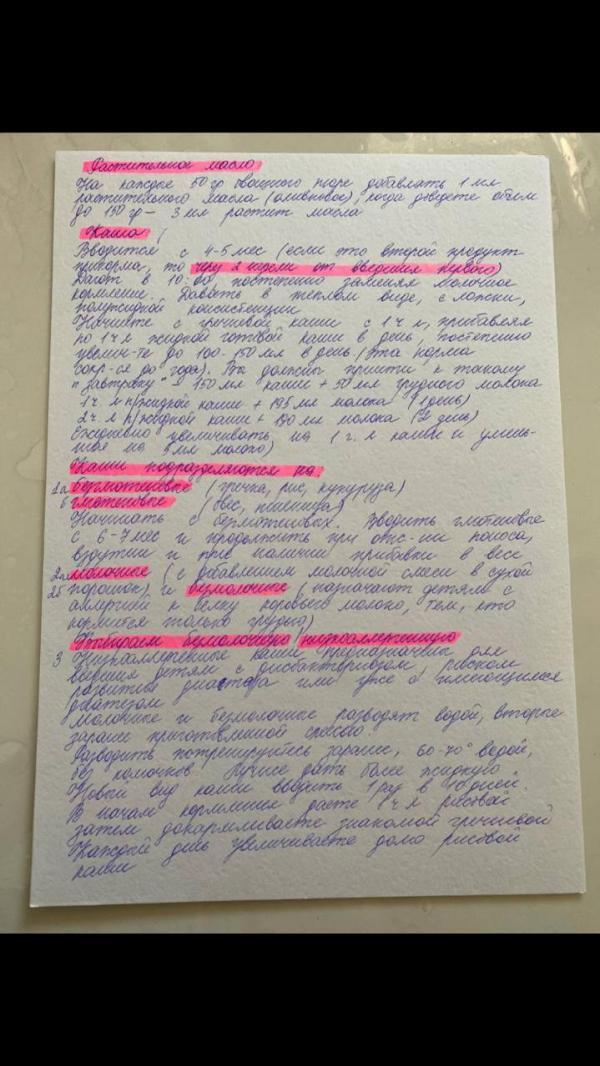 Растительное масло
На каждые 50 гр овощного пюре добавлять 1 мл
растительного масла (оливковое), когда доведете объем
до 150 гр — 3 мл растит масла
Каша
Вводится с 4-5 мес (если это второй продукт
прикорма, то через 2 недели от введения первого)
Дают в 10.00, постепенно заменяя молочное
кормление. Давать в теплом виде, с ложки,
полужидкой консистенции
Начните с гречневой каши с 1 ч л, прибавляя
по 1 ч л жидкой готовой каши в день, постепенно
увелич-те до 100-150 мл в день (эта норма
сохр-ся до года). Вы должны прийти к такому
"завтраку" = 150 мл каши + 50 мл грудного молока
1 ч л п/жидкой каши + 195 мл молока (1 день)
2 ч л п/жидкой каши + 190 мл молока (2 день)
Ежедневно увеличивать на 1 ч. л каши и умень-
шая на 5 мл молоко)
Каши подразделяются на:
1а безглютеновые (гречка, рис, кукуруза)
б глютеновые (овес, пшеница)
Начинать с безглютеновых. Вводить глютеновые
с 6-7 мес и продолжить при отс-ии поноса,
вздутии и при наличии прибавки в весе
2а молочные (с добавлением молочной смеси в сухой
2б порошок) и безмолочные (назначают детям с
аллергией к белку коровьего молока, тем, кто
кормится только грудью)
Выбираем безмолочную низкоаллергенную
3 Низкоаллергенные каши предназначены для
введения детям с дисбактериозом, риском
развития диатеза или уже с имеющимся
диатезом
Молочные и безмолочные разводят водой, вторые
заранее приготовленной смесью
Разводить потренируйтесь заранее, 60-70° водой,
без комочков. Лучше дать более жидкую.
Новый вид каши вводить 1 раз в 10 дней.
В начале кормления даете 1 ч л рисовой
затем докармливаете знакомой гречневой
Каждый день увеличиваете долю рисовой
каши